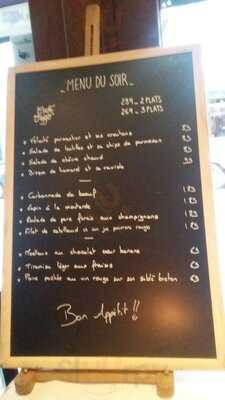 MENU DU SOIR
2 PLATS
3 PLATS
Velouté parmentier et ses croutons
Salade de lentilles et sa chips de parmesan
Salade de chèvre chaud
Bisque de homard et sa
Carbonnade de boeuf
Lapin à la moutarde
Roulade de porc farcie aux champignons
Filet de cabillaud et son jus poivron rouge
Moelleux au chocolat coeur banane
Tiramisu léger aux fraises
Poire pochée au vin rouge sur son sablé breton
Bon Appétit !!